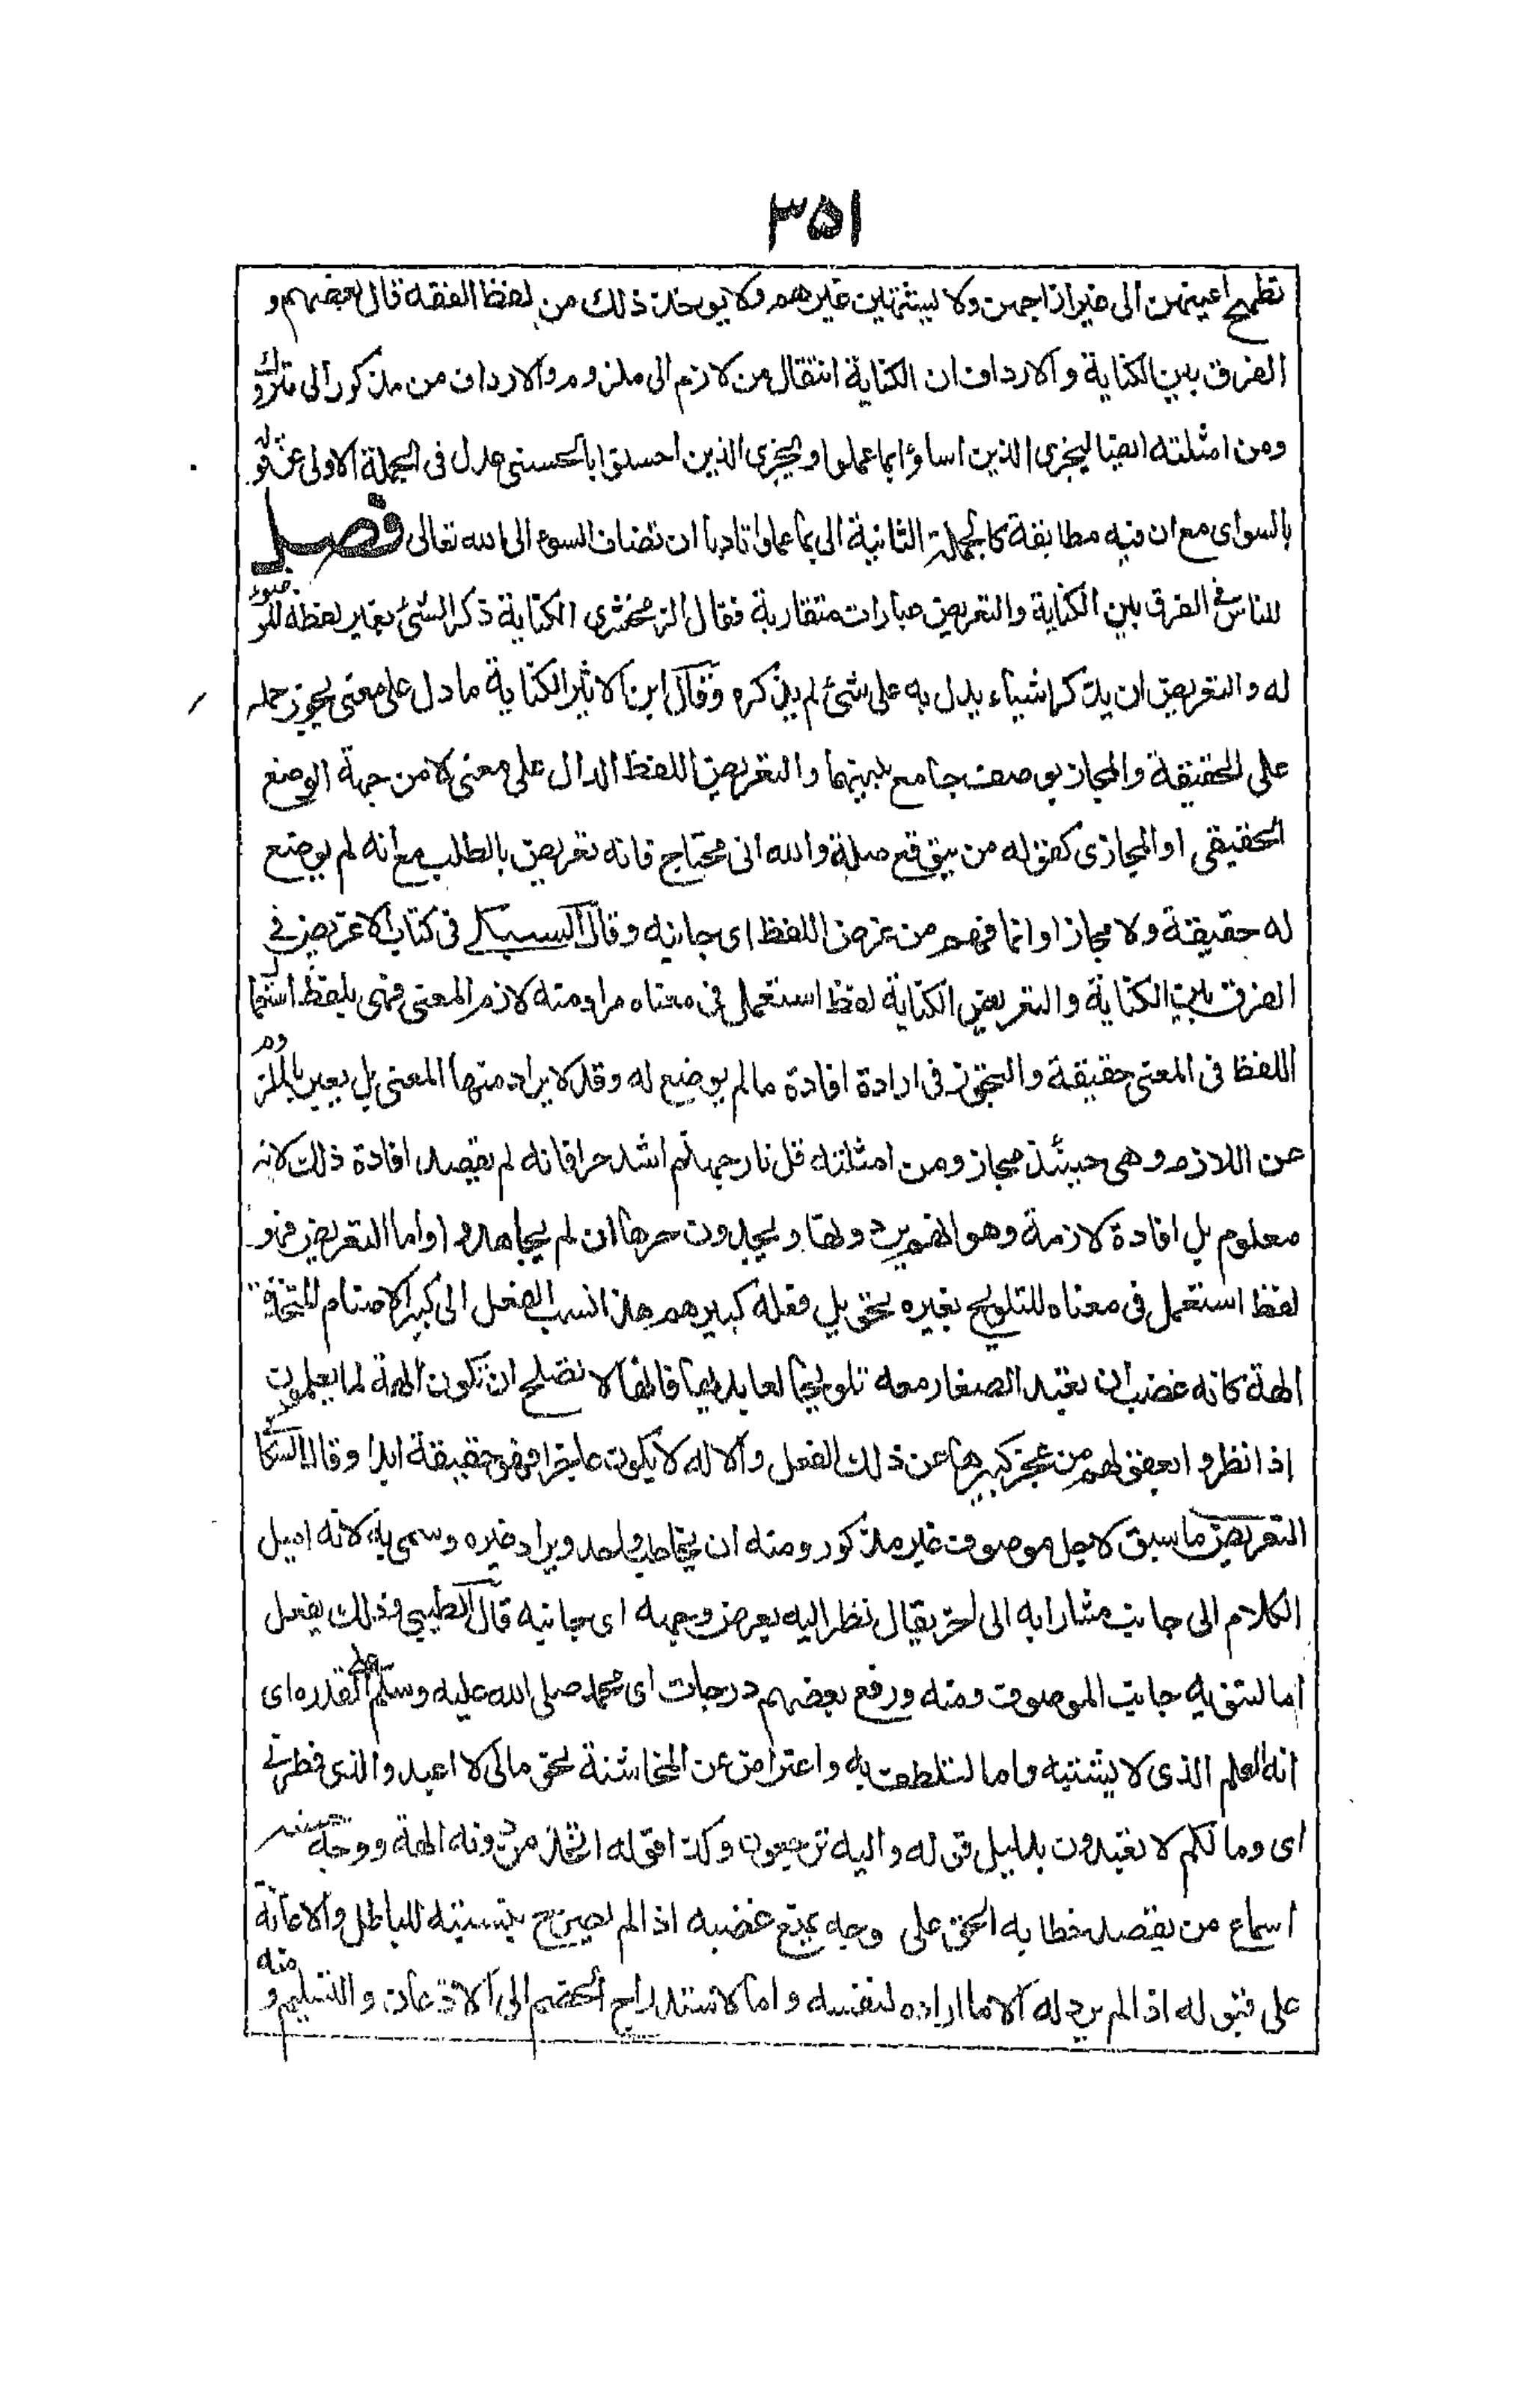 ٣٥١
تطمح اعينهن الى غير ازواجهن ولا يشتهين غيرهم ولا يوخذ ذلك من لفظ الفقه قال بعضهم و
الفرق بين الكناية والارداف ان الكناية انتقال من لازم الى ملزوم والارداف من مذكور الى متروك
ومن امثلته ايضا ليجزى الذين اساؤا بما عملوا ويجزى الذين احسنوا بالحسنى عدل فى الجملة الاولى عن قوله
بالسواى مع ان فيه مطابقة كالجملة الثانية الى بما عملوا تادبا ان تضاف السوء الى الله تعالى فصل
للناس فى الفرق بين الكناية والتعريض عبارات متقاربة فقال الزمخشرى الكناية ذكر الشئ بغير لفظه الموضوع
له والتعريض ان يذكر اشياء يدل به على شئ لم يذكره وقال ابن الاثير الكناية ما دل على معنى يجوز حمله
على الحقيقة والمجاز بوصف جامع بينهما والتعريض اللفظ الدال على معنى لا من جهة الوضع
الحقيقى او المجازى كقوله من يتوقع صلة والله انى محتاج فانه تعريض بالطلب مع انه لم يوضع
له حقيقة ولا مجازا وانما فهم من عرض اللفظ اى جانبه وقال السبكى فى كتاب الاغريض فى
الفرق بين الكناية والتعريض الكناية لفظ استعمل فى معناه مرادا منه لازم المعنى فهى بلفظ استعمال
اللفظ فى المعنى حقيقة والتجوز فى ارادة افادة ما لم يوضع له وقد لا يراد منها المعنى بل يعبر بالملزوم
عن اللازم وهى حينئذ مجاز ومن امثلته قل نار جهنم اشد حرا فانه لم يقصد افادة ذلك لانه
معلوم بل افادة لازمة وهو انهم يردونها ويجدون حرها ان لم يجاهدوا واما التعريض فهو
لفظ استعمل فى معناه للتلويح بغيره نحو بل فعله كبيرهم هذا نسب الفعل الى كبير الاصنام المتخذة
الهة كانه غضب ان تعبد الصغار معه تلويحا لعابديها فانها لا تصلح ان تكون الهة لما يعلمون
اذا نظروا بعقولهم من عجز كبيرها عن ذلك الفعل والاله لا يكون عاجزا فهو حقيقة ابدا وقال السكاكى
التعريض ما سبق لاجل موصوف غير مذكور ومنه ان يخاطب واحد ويراد غيره وسمى به لانه اميل
الكلام الى جانب مشارا به الى اخر يقال نظر اليه بعرض وجهه اى جانبه قال الطيبى وذلك يفعل
اما لتنويه جانب الموصوف ومنه ورفع بعضهم درجات اى محمد صلى الله عليه وسلم اعلاء لقدره اى
انه العلم الذى لا يشتبه واما لتلطف به واعتراض عن المخاشنة نحو مالى لا اعبد والذى فطرنى
اى وما لكم لا تعبدون بدليل قوله واليه ترجعون وكذا قوله اتخذ من دونه الهة ووجه حسنه
اسماع من يقصد خطابه الحق على وجه يمنع غضبه اذا لم يصرح بنسبته للباطل والاعانة
على قبوله اذا لم يرد له الا ما اراده لنفسه واما لاستدراج الخصم الى الاذعان والتسليم ومنه